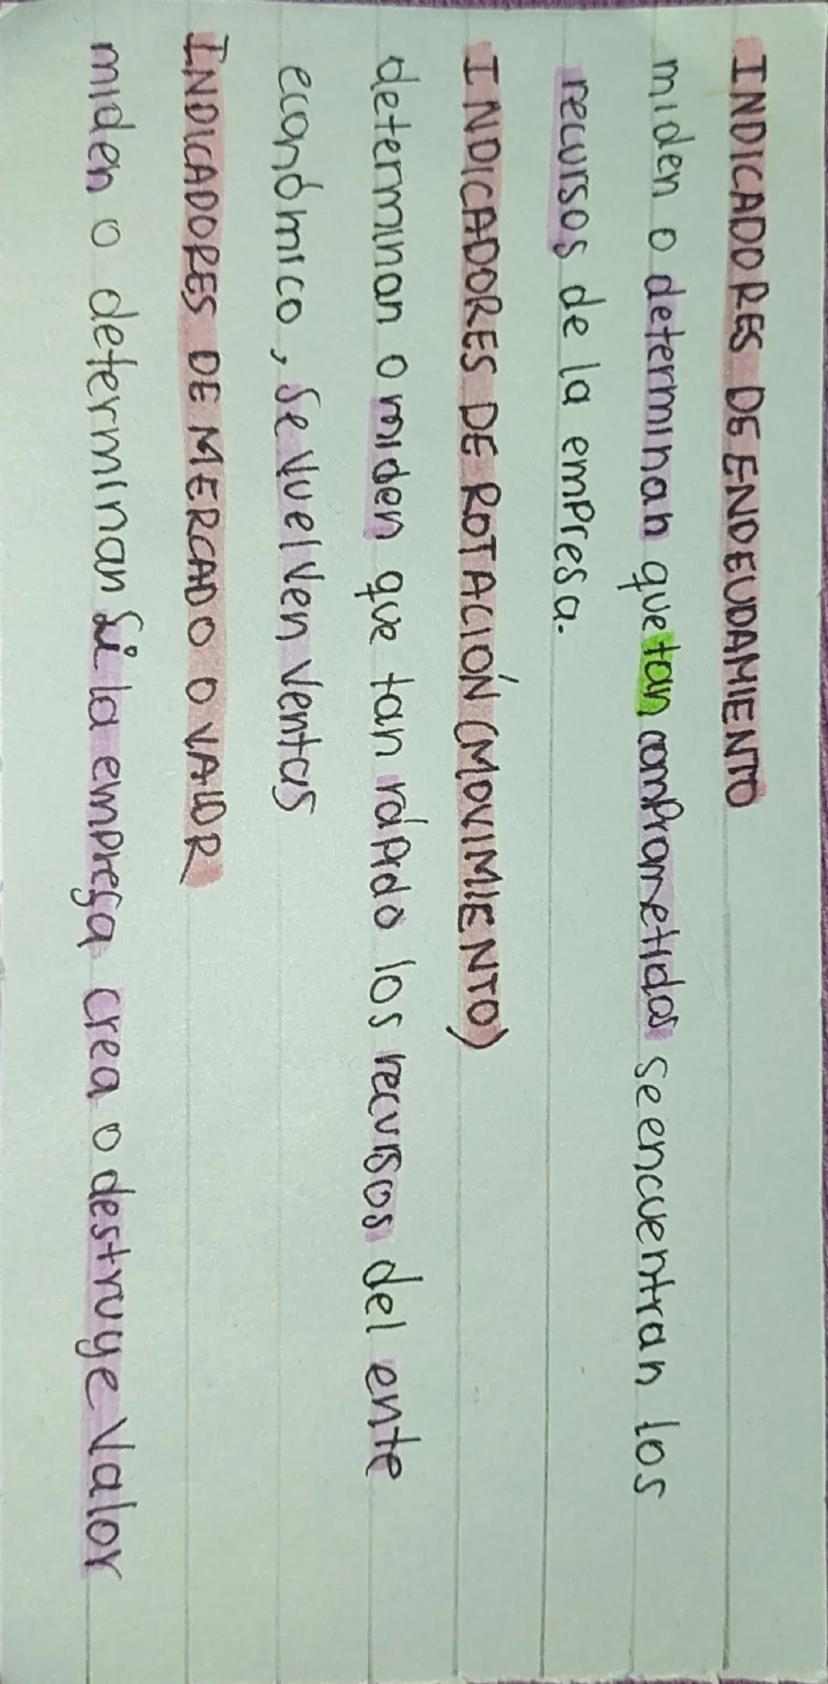 INDICADORES DE ENDEUDAMIENTO
miden o determinan que tan comprometidos se encuentran los
recursos de la empresa.
INDICADORES DE ROTACIÓN (MOVIMIENTO)
determinan o miden que tan rápido los recursos del ente
económico, se vuelven ventas
INDICADORES DE MERCADO O VALOR
miden o determinan si la empresa crea o destruye valor